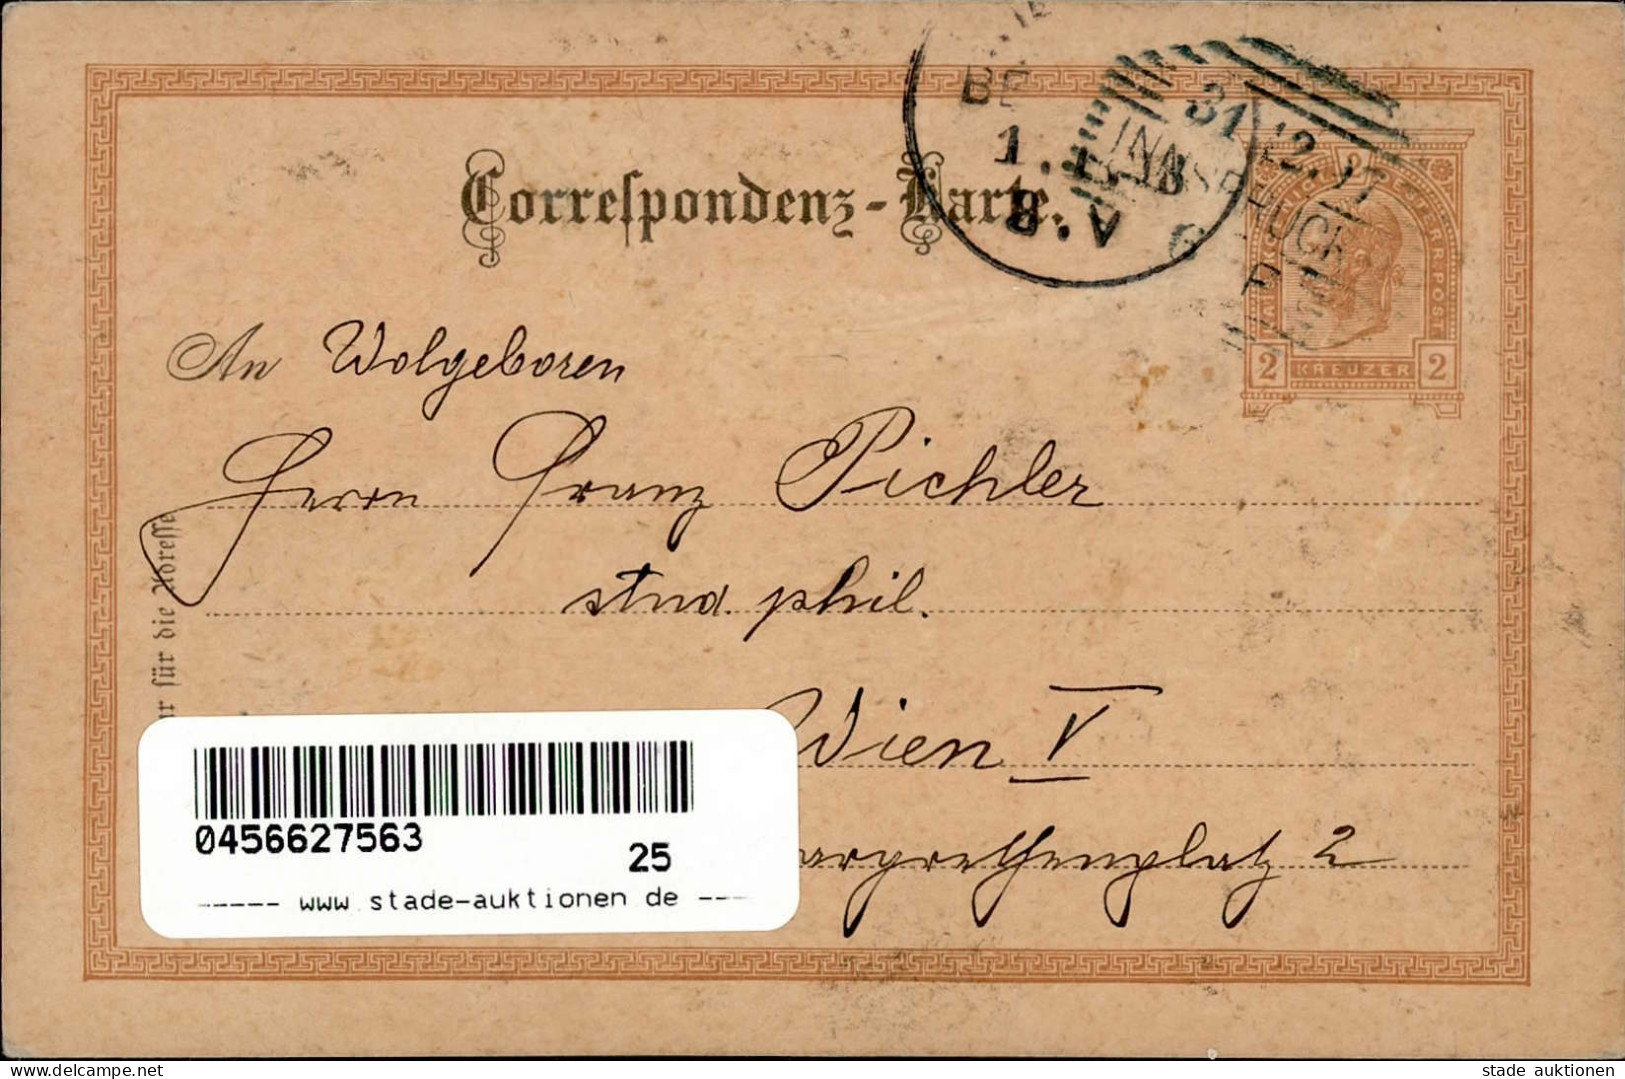 BE
1.
8.V
31 12. 97
INNSBRUCK
Correspondenz-Karte.
KAIS. KÖNIGL. OESTERR. POST
2 KREUZER 2
An Wolgeboren
Herrn Franz Pichler
stud. phil.
Wien V
Margarethenplatz 2
für die Adresse
0456627563
25
www stade-auktionen de
stade auktionen